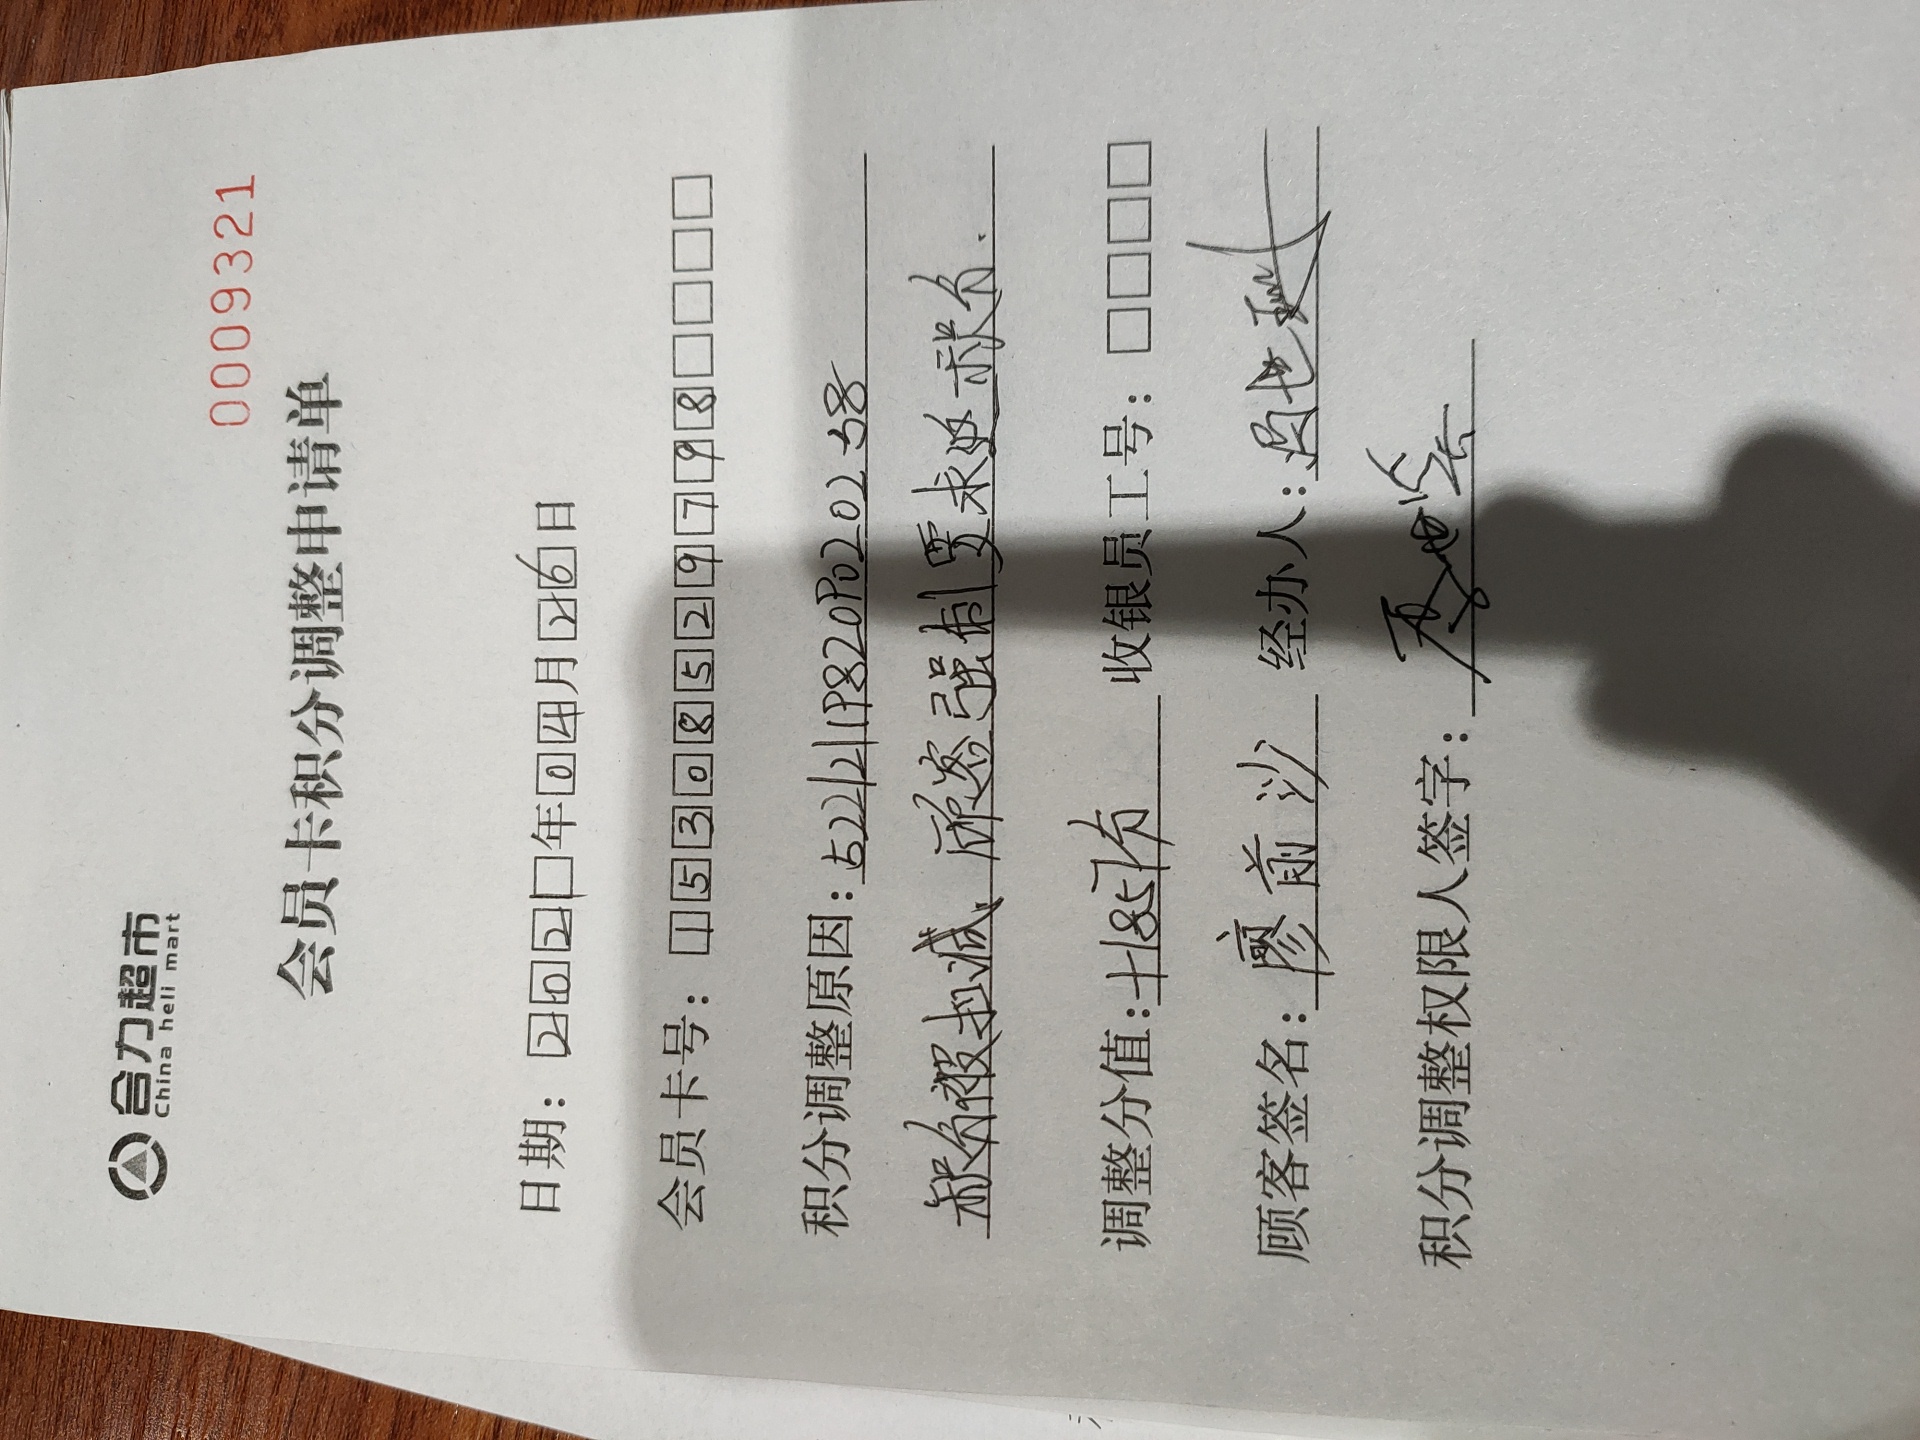 合力超市
China heli mart
0009321
会员卡积分调整申请单
日期：202□年04月26日
会员卡号：15308529798□□□□
积分调整原因：522121P820P020258
积分被扣减、顾客强制要求的积分.
调整分值：+1851分 收银员工号：□□□□
顾客签名：廖前沙 经办人：
积分调整权限人签字：